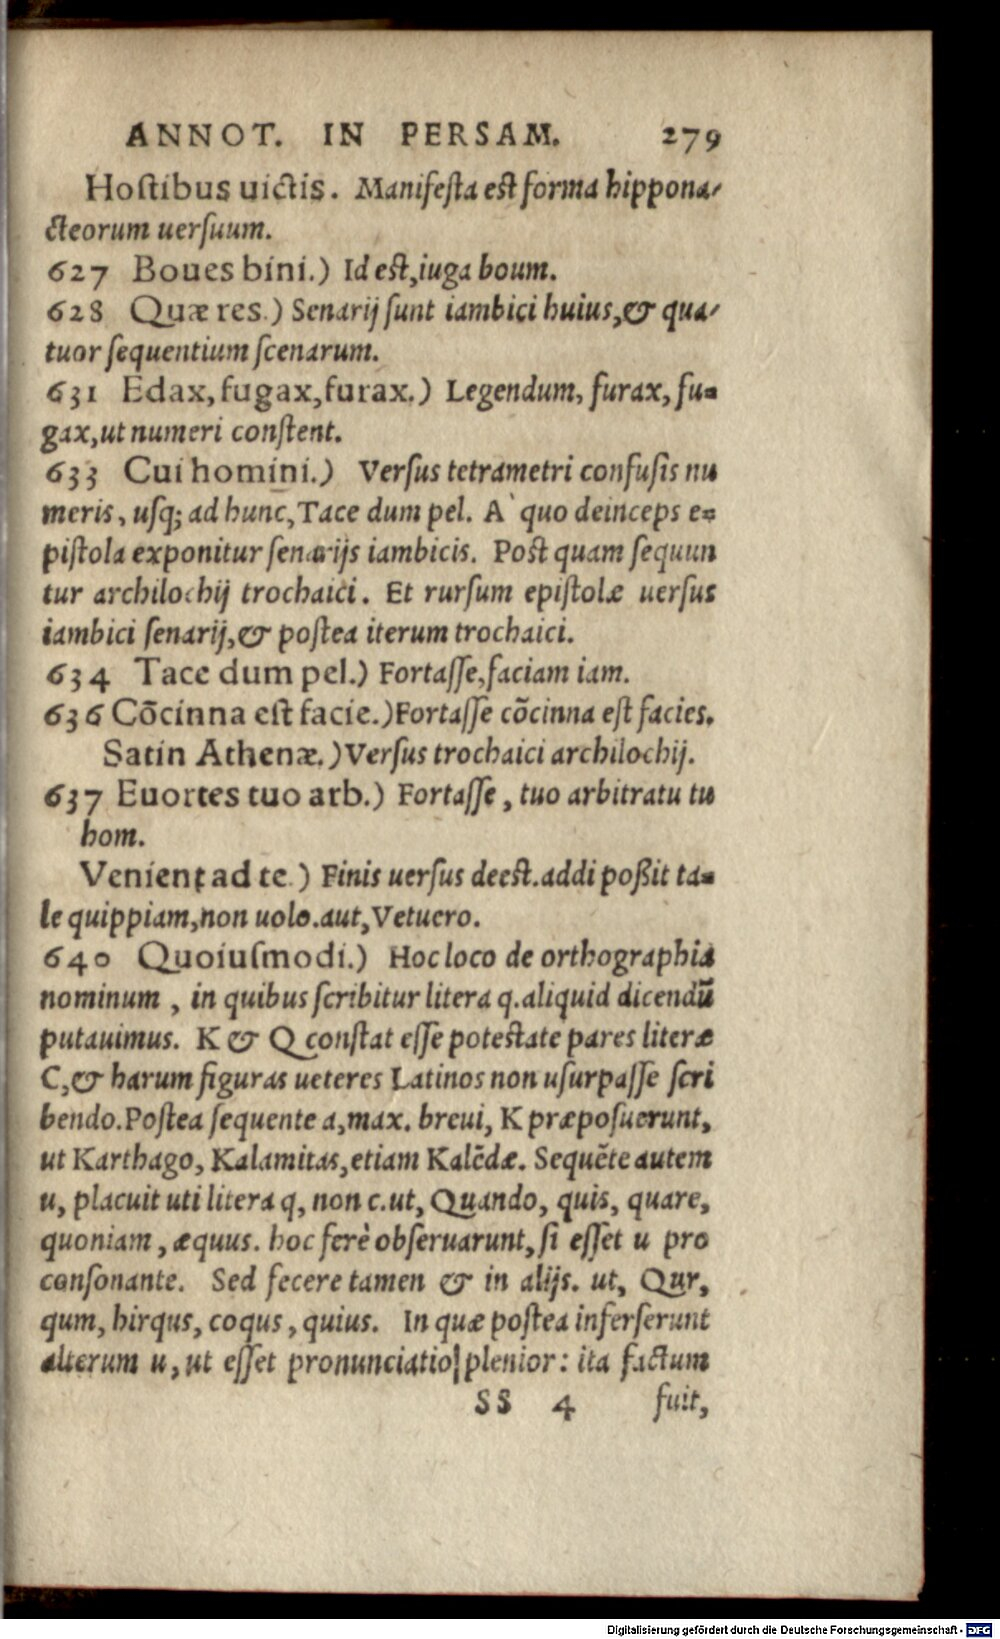 ANNOT. IN PERSAM. 279
Hoſtibus uictis. Manifeſta eſt forma hippona-
cteorum uerſuum.
627 Boues bini.) Id eſt, iuga boum.
628 Quæ res.) Senarij ſunt iambici huius, & qua-
tuor ſequentium ſcenarum.
631 Edax, fugax, furax.) Legendum, furax, fu-
gax, ut numeri conſtent.
633 Cui homini.) Verſus tetrametri confuſis nu
meris, uſq; ad hunc, Tace dum pel. A` quo deinceps e-
piſtola exponitur ſenarijs iambicis. Poſt quam ſequun
tur archilochij trochaici. Et rurſum epiſtolæ uerſus
iambici ſenarij, & poſtea iterum trochaici.
634 Tace dum pel.) Fortaſſe, faciam iam.
636 Cõcinna eſt facie.) Fortaſſe cõcinna eſt facies.
Satin Athenæ.) Verſus trochaici archilochij.
637 Euortes tuo arb.) Fortaſſe, tuo arbitratu tu
hom.
Venient ad te.) Finis uerſus deeſt. addi poßit ta-
le quippiam, non uolo. aut, Vetuero.
640 Quoiuſmodi.) Hoc loco de orthographia
nominum, in quibus ſcribitur litera q. aliquid dicendũ
putauimus. K & Q conſtat eſſe poteſtate pares literæ
C, & harum figuras ueteres Latinos non uſurpaſſe ſcri
bendo. Poſtea ſequente a, max. breui, K præpoſuerunt,
ut Karthago, Kalamitas, etiam Kalẽdæ. Sequẽte autem
u, placuit uti litera q, non c. ut, Quando, quis, quare,
quoniam, æquus. hoc ferè obſeruarunt, ſi eſſet u pro
conſonante. Sed fecere tamen & in alijs. ut, Qur,
qum, hirqus, coqus, quius. In quæ poſtea inferſerunt
alterum u, ut eſſet pronunciatio plenior: ita factum
SS 4 fuit,
Digitalisierung gefördert durch die Deutsche Forschungsgemeinschaft - DFG